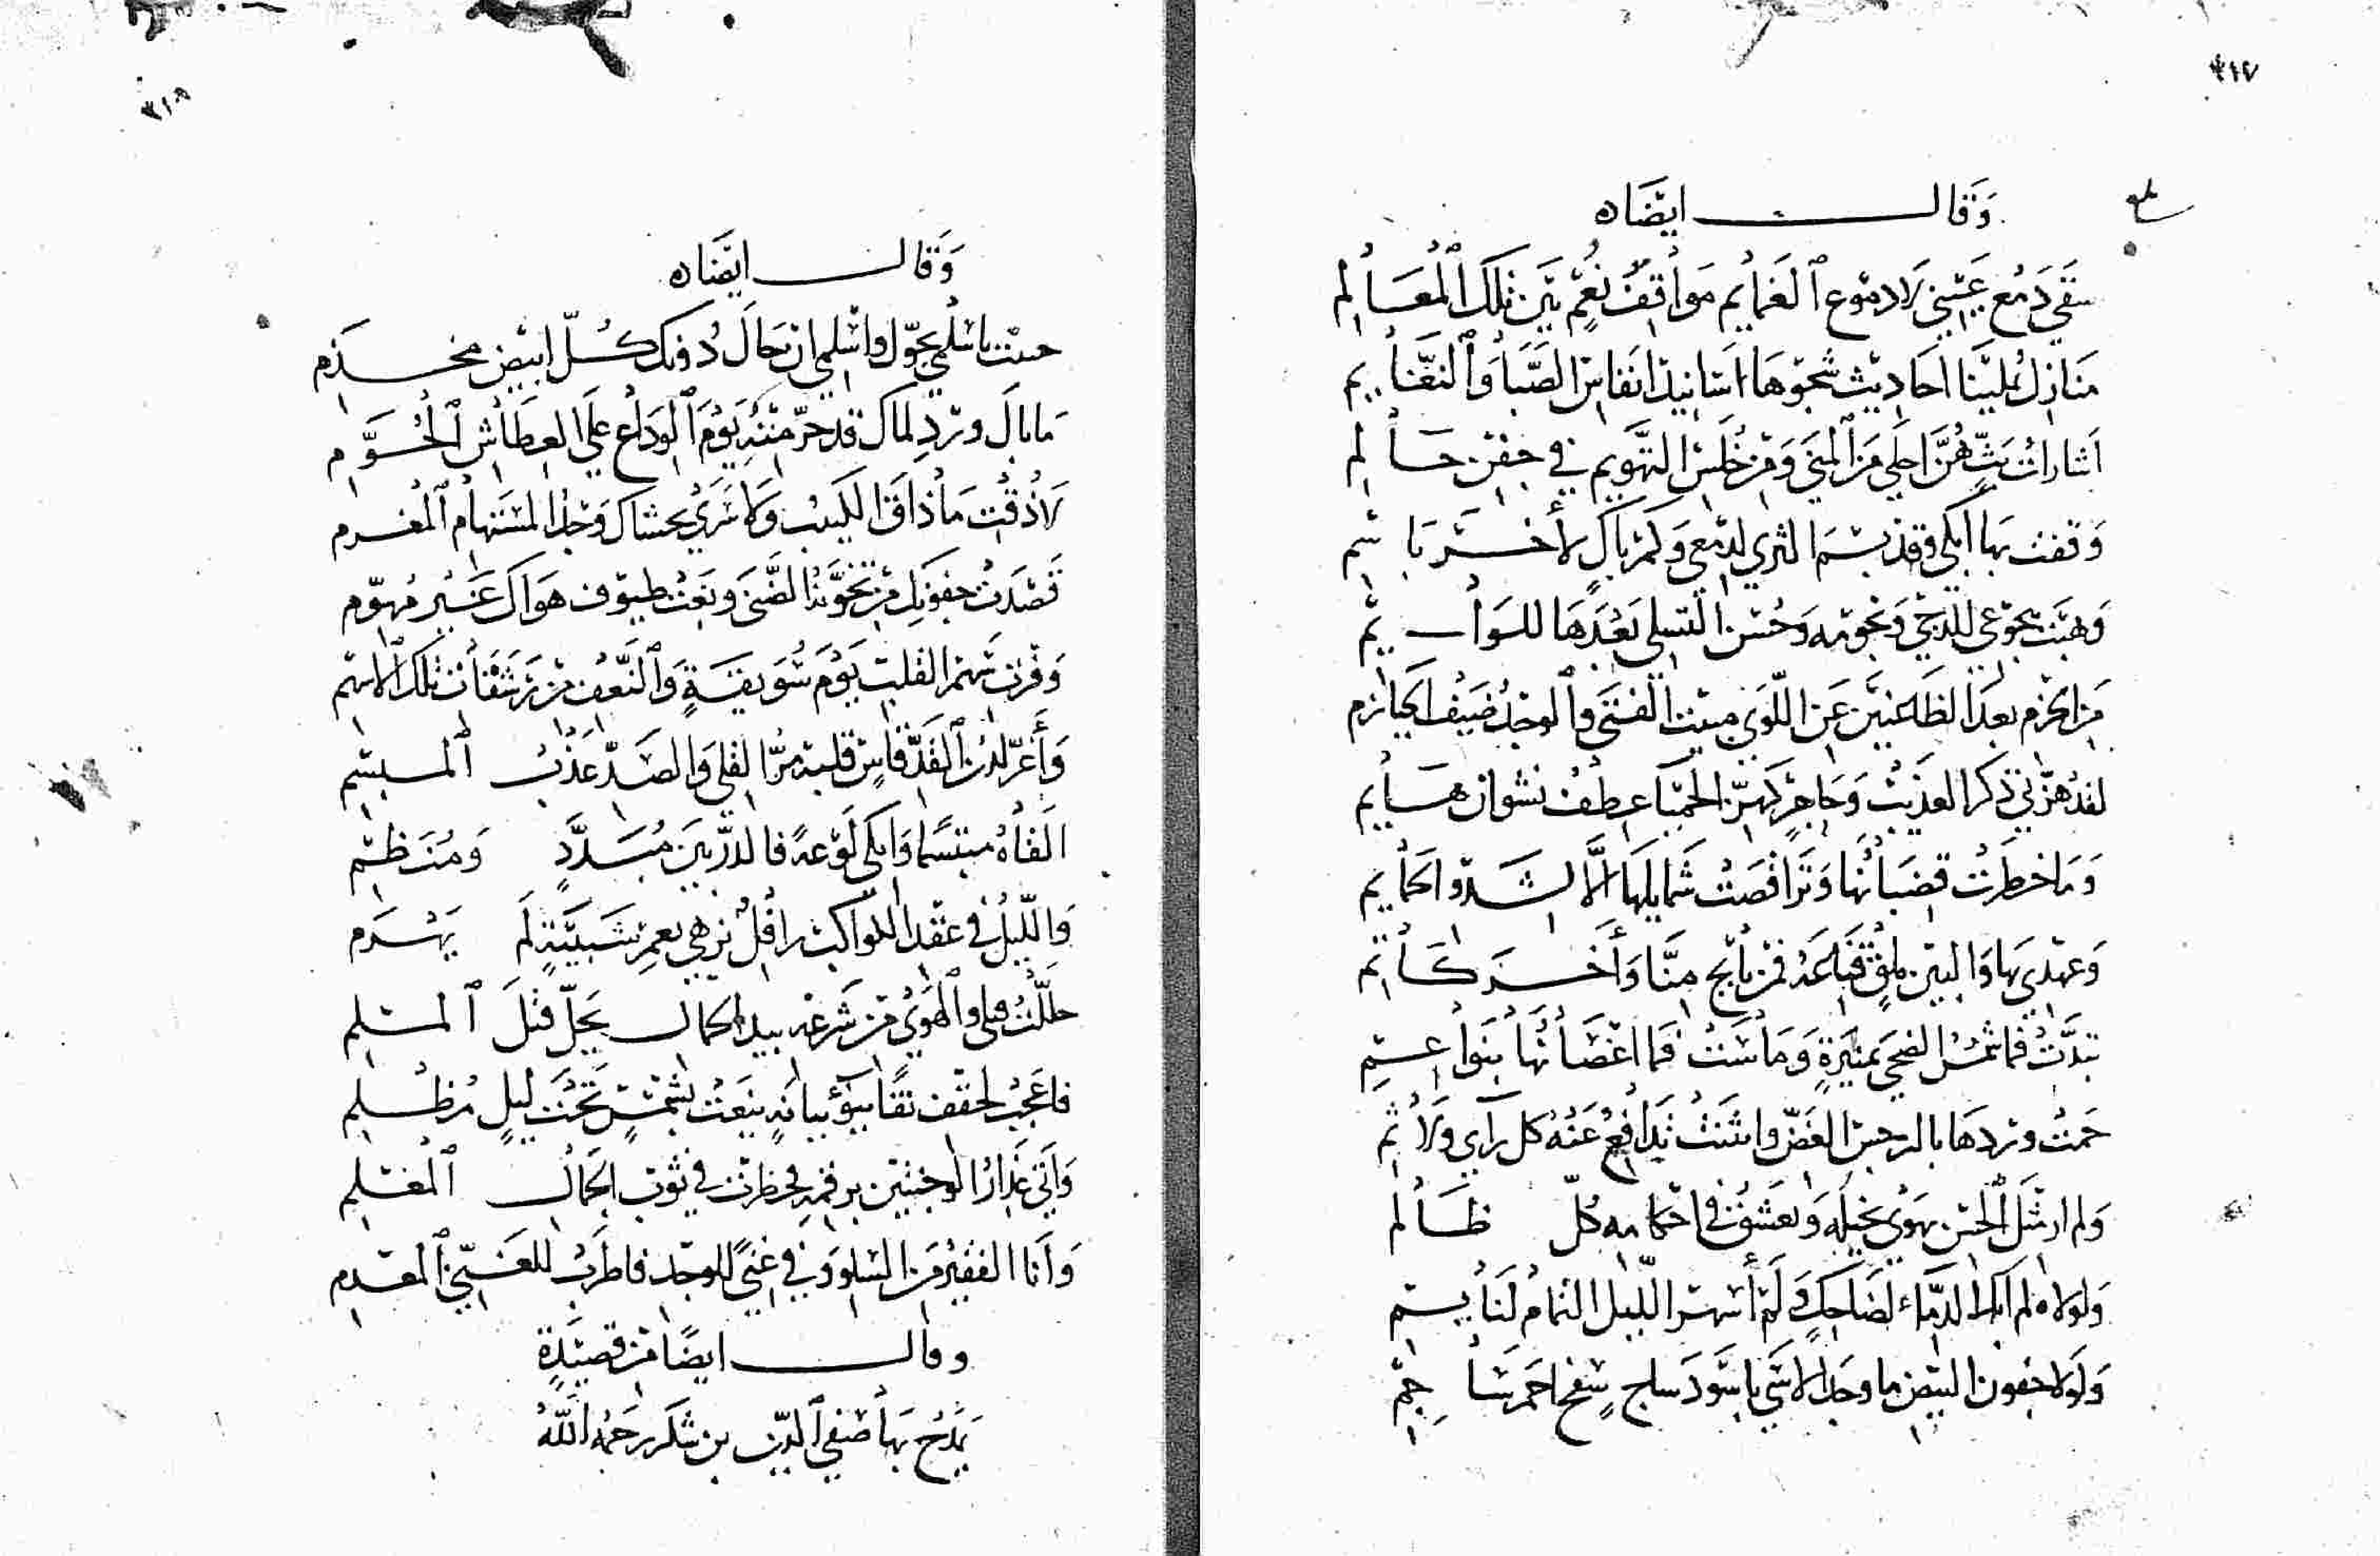 ٣١٧
وَقَالَ ايضَاه
سَقَي دَمْعُ عَيْنِي لَا دمُوع ٱلغَمَايِم مَواقِفَ نُعْمٍ بَيْنَ تِلكَ ٱلْمعَالِم
مَنازِل تُملينَا احَادِيث شجوهَا اسَانيدَ انفَاسِ الصَّبَا وَٱلنعَايِم
اشارات بَثٍّ هُنَّ احلي مَن ٱلمنَي وَمِن خُلَسِ التهوِيم في جفِن حَالِم
وَقفت بهَا ابكي وقد بسَمَ الثري لدمعِي وَكَم بَاكٍ لأخَرَ بَاسِم
وَهبَت هجوعي للدجَي وَنجومه وَحُسن التسلي بَعْدَهَا للوَايِم
مَن الحزم بعدَ الظاعنين عَن اللّوَي مبيت الفتَي وٱلوجدُ ضَيف الحيازم
لقد هزَّني ذكر العذيب وَحَاجِرٍ كهزّ الحميّا عِطفَ نشوان هَايم
وَمَا خطرَت قضبانهَا وَتراقصَت شمايلهَا الَّا لشدو الحَمَايم
وَعهدي بهَا وَالبين مُلقٍ قناعَهُ فمن بَايح منَّا وَأخَر كَاتم
تبدَّت فما شمسُ الضحي بمنيرةٍ وَمَاسَت فمَا اغصَانهَا بنواعِم
حَمت وردهَا بالنرجس الغضّ وانثنت يُدَافِعُ عَنْهُ كل رَايٍ وَلَاثم
وَلم ار مثلَ الحسن يهوي بخيله وَيعشق في احكامه كلّ ظَالم
وَلولاه لم ابك الدمَاء لضَاحِكٍ وَلم أسهر الليل التمام لنَايم
وَلَولا جفون البيض ما وجد الاسَي باسَود سَاجٍ سفح احمر سَاجِم
٣١٨
وَقَال ايضَاه
حييت يا سَلمي بحوّل واسْلمي ان حَال دُونك كُلّ ابيض مخذَم
مَا بالَ وردِ لماك قد حرّمته يَوْمَ ٱلوَدَاع عَلَي العِطَاش ٱلحُوَّم
لَا ذُقت مَا ذاقَ الكئيب وَلا سَرَي بحشاك وَجدُ المستهام ٱلمغرم
قَصَدت جفونك مَن تخوَّنهُ الضَّني وَنفت طيوف هَواك غَيْر مُهوّم
وَفرت سَهم القلب يَومَ سُويقَةٍ وَٱلنَّعف من رَشقَات تلك الاسهم
وَأغرّ لدن ٱلقدّ قاسٍ قلبه مرّ القلي وَالصَدّ عَذْب ٱلمبسِم
القَاه مبتسمًا وَابكي لَوعةً فالدرّ بين مُبَدَّدٍ وَمُنَظم
وَالليلُ في عقد الكواكب رافلٌ نزهي بعمر شَبيبَةٍ لَم يَهْرَم
حلّلت قتلي وٱلهوَي من شَرعهِ بيد الجمال يَحلّ قَتلَ ٱلمسْلم
فاعجَب لحقف نقًا ينوء ببانَةٍ ينعت بشمسٍ تَحْتَ ليلٍ مُظلم
وَاتي عَذارُ الوجنتين برقمهِ فخطرت في ثوب الجمَال ٱلمعلم
وَأنَا الفقير مَن السلو وَفي غِنيً للوجد فاطرَب للغنيّ ٱلمعدِم
وقال ايضًا من قصِيدَةٍ
يَمدَحُ بهَا صَفي ٱلدّين بن شكر رحمهُ اللهُ